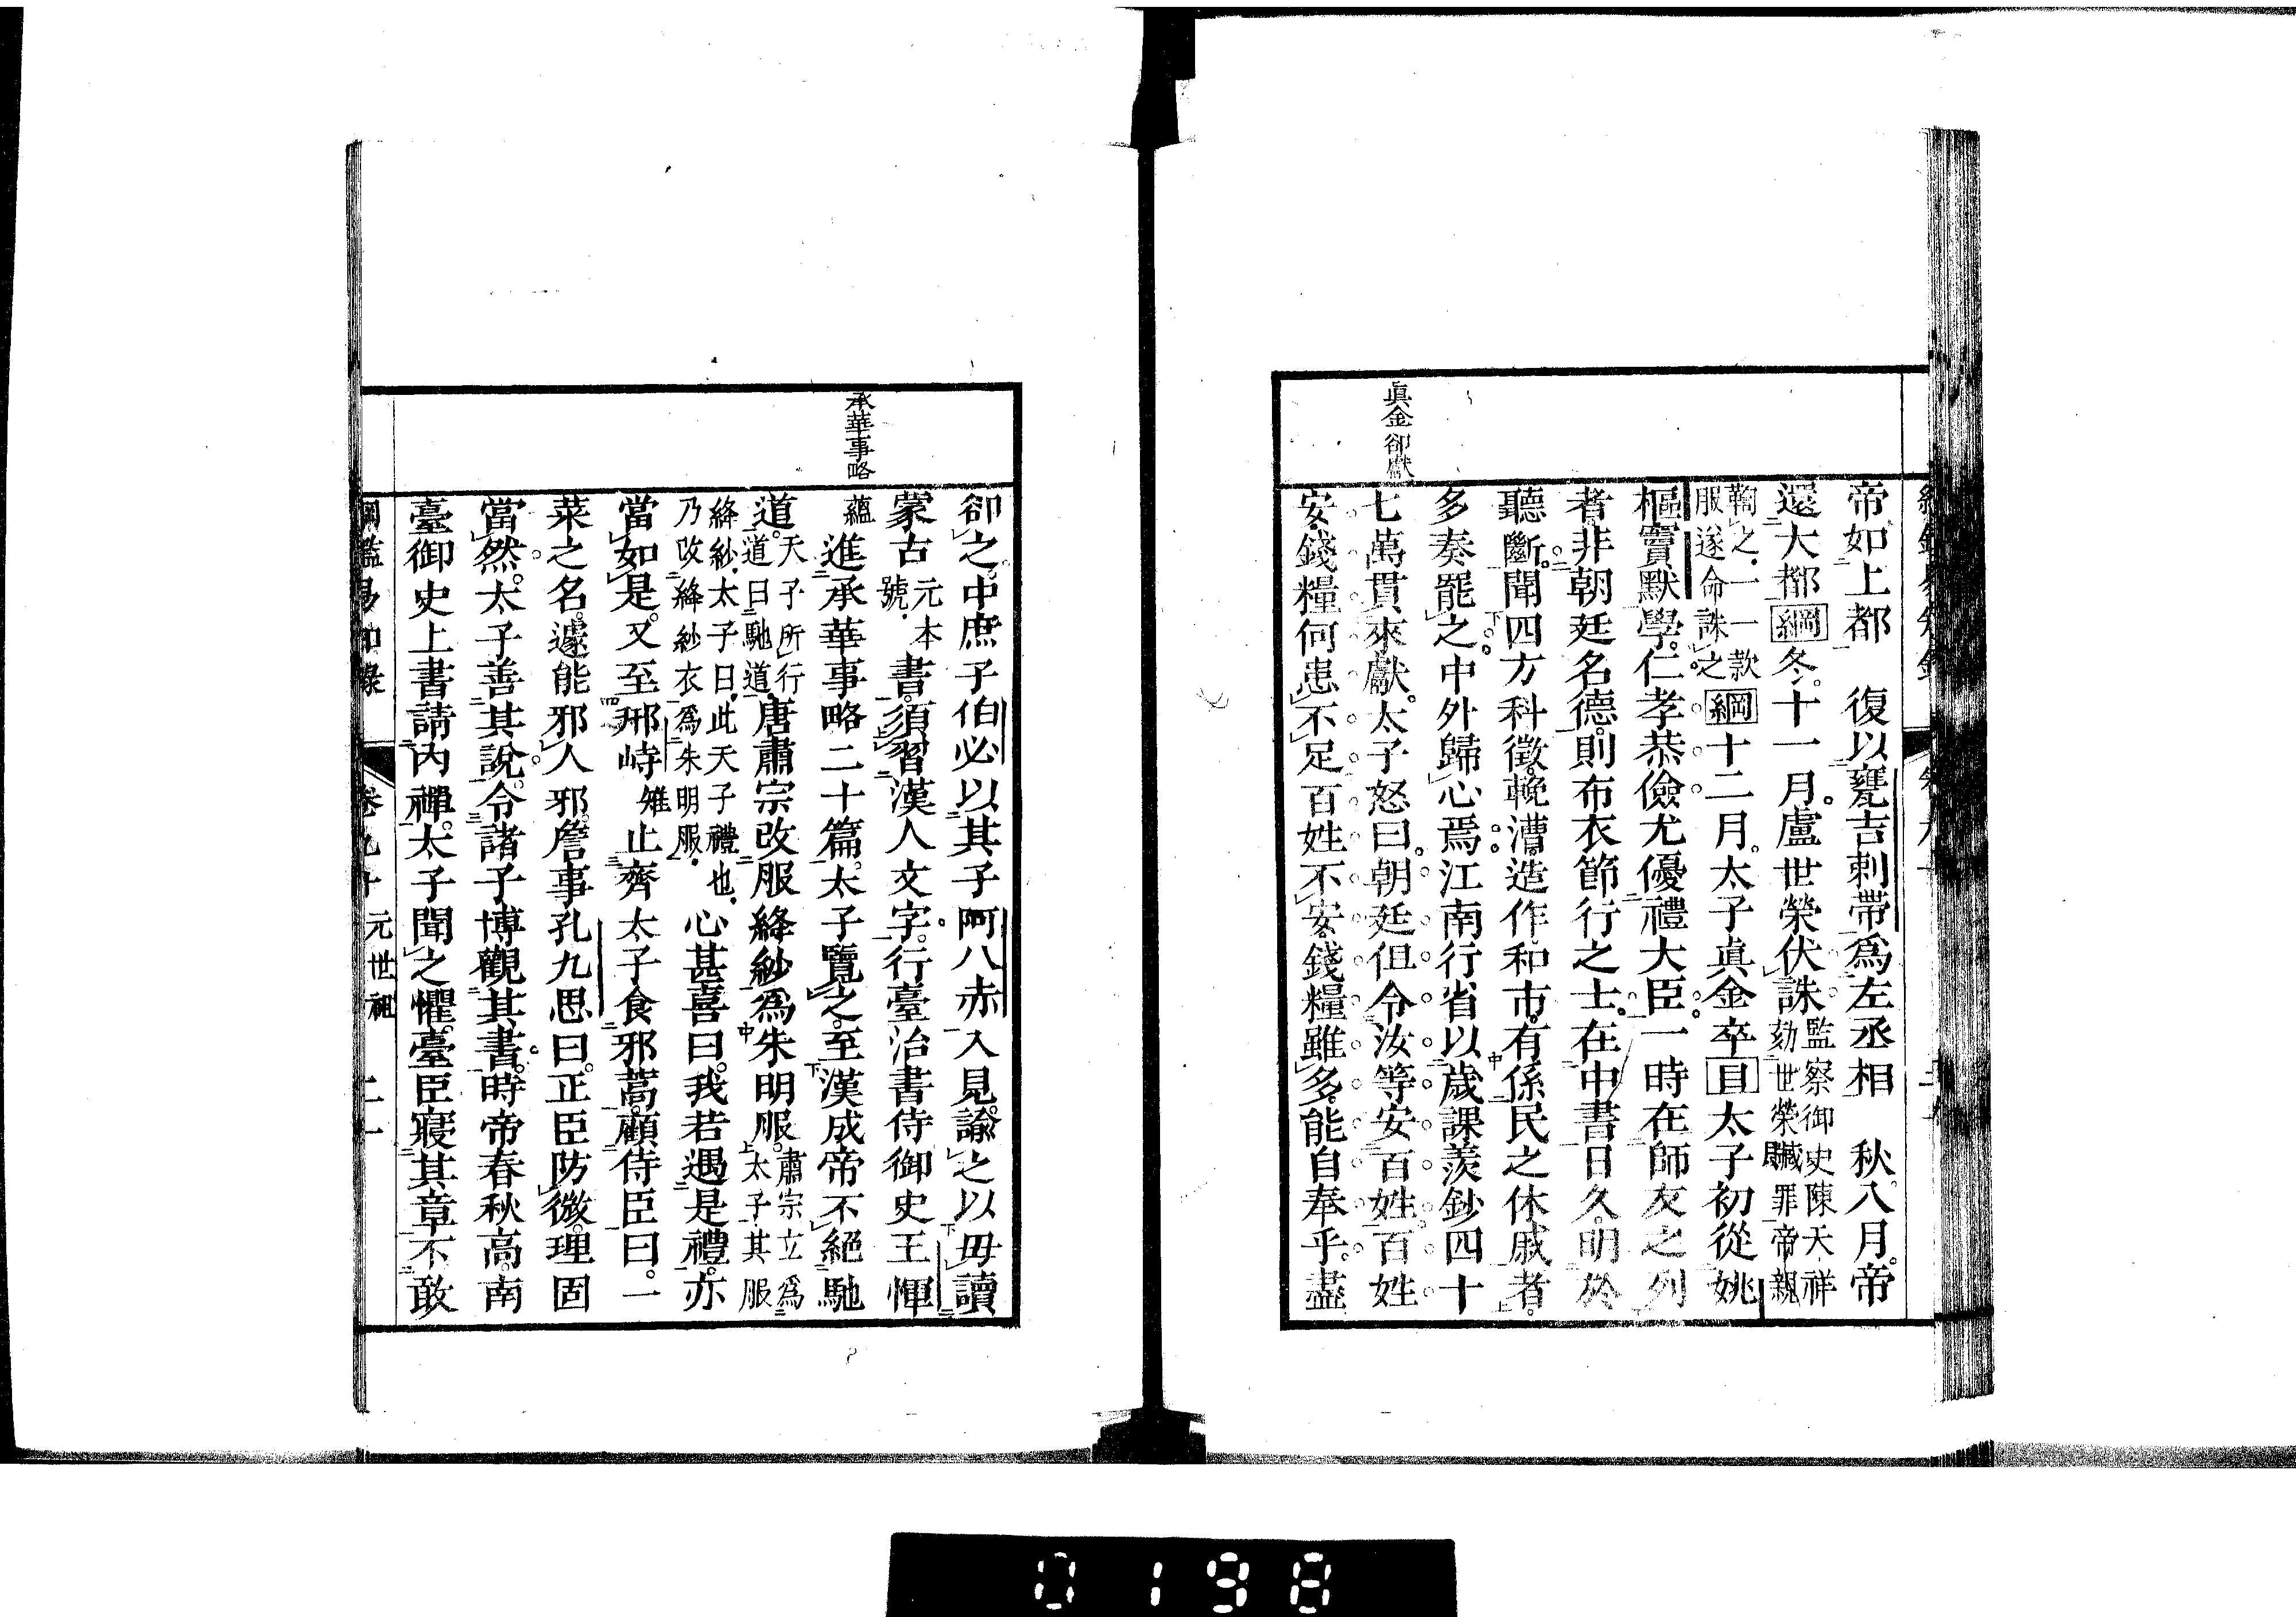 眞金卻獻
帝如上都　復以甕吉剌帶爲左丞相　秋八月帝
還大都綱冬十一月盧世榮伏誅監察御史陳天祥劾世榮贓罪帝親
鞫之一一款服遂命誅之綱十二月太子眞金卒目太子初從姚
樞竇默學仁孝恭儉尤優禮大臣一時在師友之列
者非朝廷名德則布衣節行之士在中書日久明於
聽斷聞四方科徵輓漕造作和市有係民之休戚者
多奏罷之中外歸心焉江南行省以歲課羨鈔四十
七萬貫來獻太子怒曰朝廷但令汝等安百姓百姓
安錢糧何患不足百姓不安錢糧雖多能自奉乎盡
承華事略
卻之中庶子伯必以其子阿八赤入見諭之以毋讀
蒙古元本號書須習漢人文字行臺治書侍御史王惲
蘊進承華事略二十篇太子覽之至漢成帝不絕馳
道天子所行道曰馳道唐肅宗改服絳紗爲朱明服肅宗立爲太子其服
絳紗太子曰此天子禮也乃改絳紗衣爲朱明服心甚喜曰我若遇是禮亦
當如是又至邢峙雉止齊太子食邪蒿顧侍臣曰一
菜之名遽能邪人邪詹事孔九思曰正臣防微理固
當然太子善其說令諸子博觀其書時帝春秋高南
臺御史上書請內禪太子聞之懼臺臣寢其章不敢
綱鑑易知錄　卷九十　元世祖　二一
0198